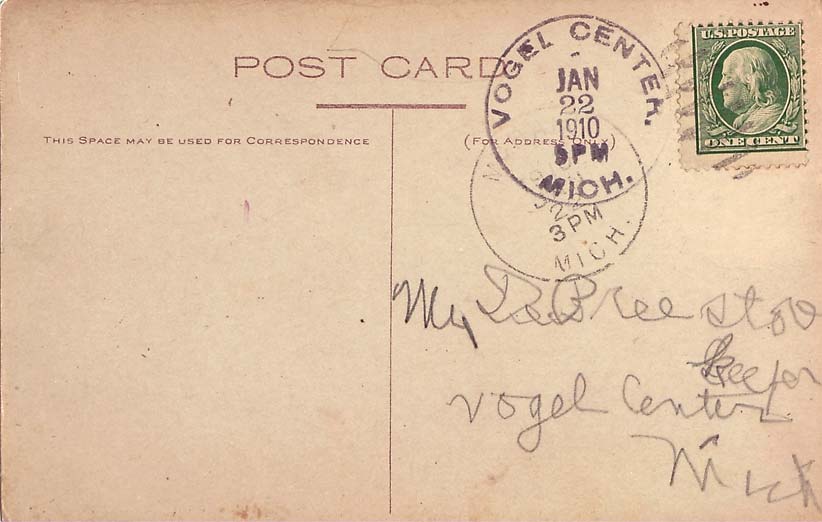 POST CARD
THIS SPACE MAY BE USED FOR CORRESPONDENCE
(FOR ADDRESS ONLY)
VOGEL CENTER.
JAN
22
1910
5PM
MICH.
22
3PM
MICH.
U.S.POSTAGE
ONE CENT
DeBree stov
Keeper
vogel Center
Mich